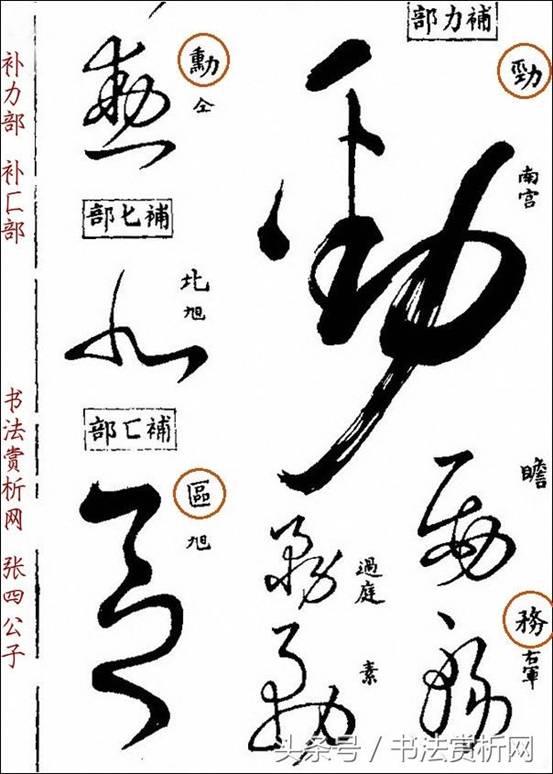 補力部
勁
南宫
瞻
務
右軍
過庭
素
勳
仝
補匕部
北
旭
補匚部
區
旭
补力部 补匚部
书法赏析网 张四公子
头条号 / 书法赏析网